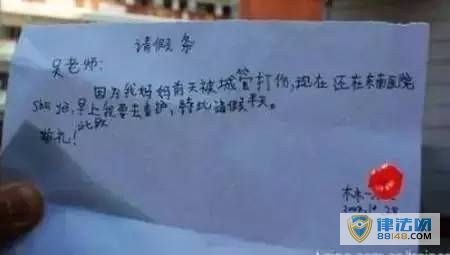 请假条
吴老师:
因为我妈妈前天被城管打伤,现在还在东南医院
早上我要去看护,特此请假半天。
此致
敬礼!
木木
律法网
88148.com